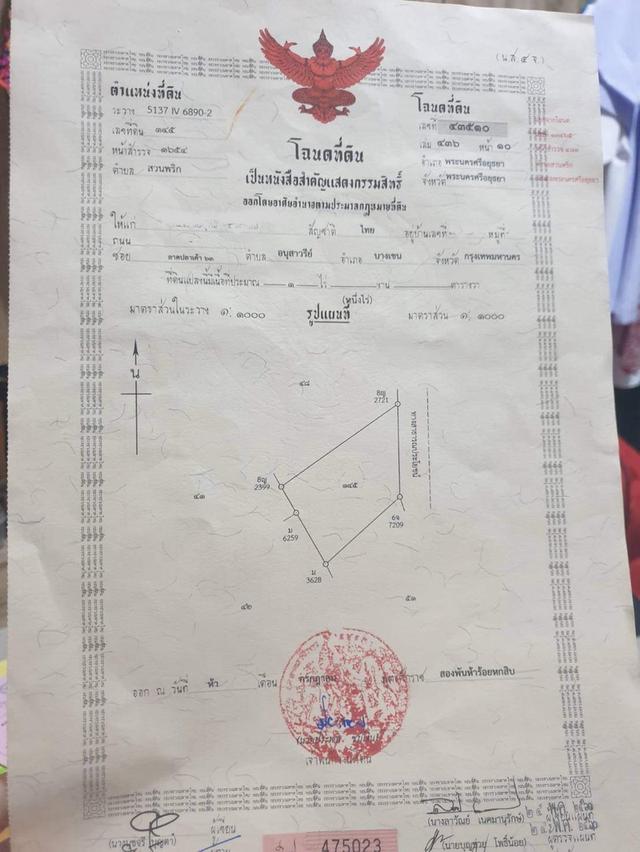 (น.ส. ๔ จ.)
ตำแหน่งที่ดิน
ระวาง 5137 IV 6890-2
เลขที่ดิน ๑๔๕
หน้าสำรวจ ๑๖๕๔
ตำบล สวนพริก
โฉนดที่ดิน
เลขที่ ๔๓๕๑๐
เล่ม ๔๓๖ หน้า ๑๐
อำเภอ พระนครศรีอยุธยา
จังหวัด พระนครศรีอยุธยา
โฉนดที่ดิน
เป็นหนังสือสำคัญแสดงกรรมสิทธิ์
ออกโดยอาศัยอำนาจตามประมวลกฎหมายที่ดิน
ให้แก่ สัญชาติ ไทย อยู่บ้านเลขที่ หมู่ที่
ถนน
ซอย ลาดปลาเค้า ๖๓ ตำบล อนุสาวรีย์ อำเภอ บางเขน จังหวัด กรุงเทพมหานคร
ที่ดินแปลงนี้มีเนื้อที่ประมาณ ๑ ไร่ งาน ตารางวา
(หนึ่งไร่)
มาตราส่วนในระวาง ๑: ๑๐๐๐ รูปแผนที่ มาตราส่วน ๑: ๑๐๐๐
น
๔๘
ธญ
2721
ทางสาธารณประโยชน์
ธญ
2399
๑๔๕
๔๑
ม
6259
6จ
7209
ม
3628
๔๒
๕๑
ออก ณ วันที่ ห้า เดือน กรกฎาคม พุทธศักราช สองพันห้าร้อยหกสิบ
เจ้าพนักงานที่ดิน
ผู้เขียน
(นางลาวัณย์ เนคมานุรักษ์)
ผู้เขียนแผนที่
(นายบุญช่วย โพธิ์น้อย)
ผู้ตรวจแผนที่
475023